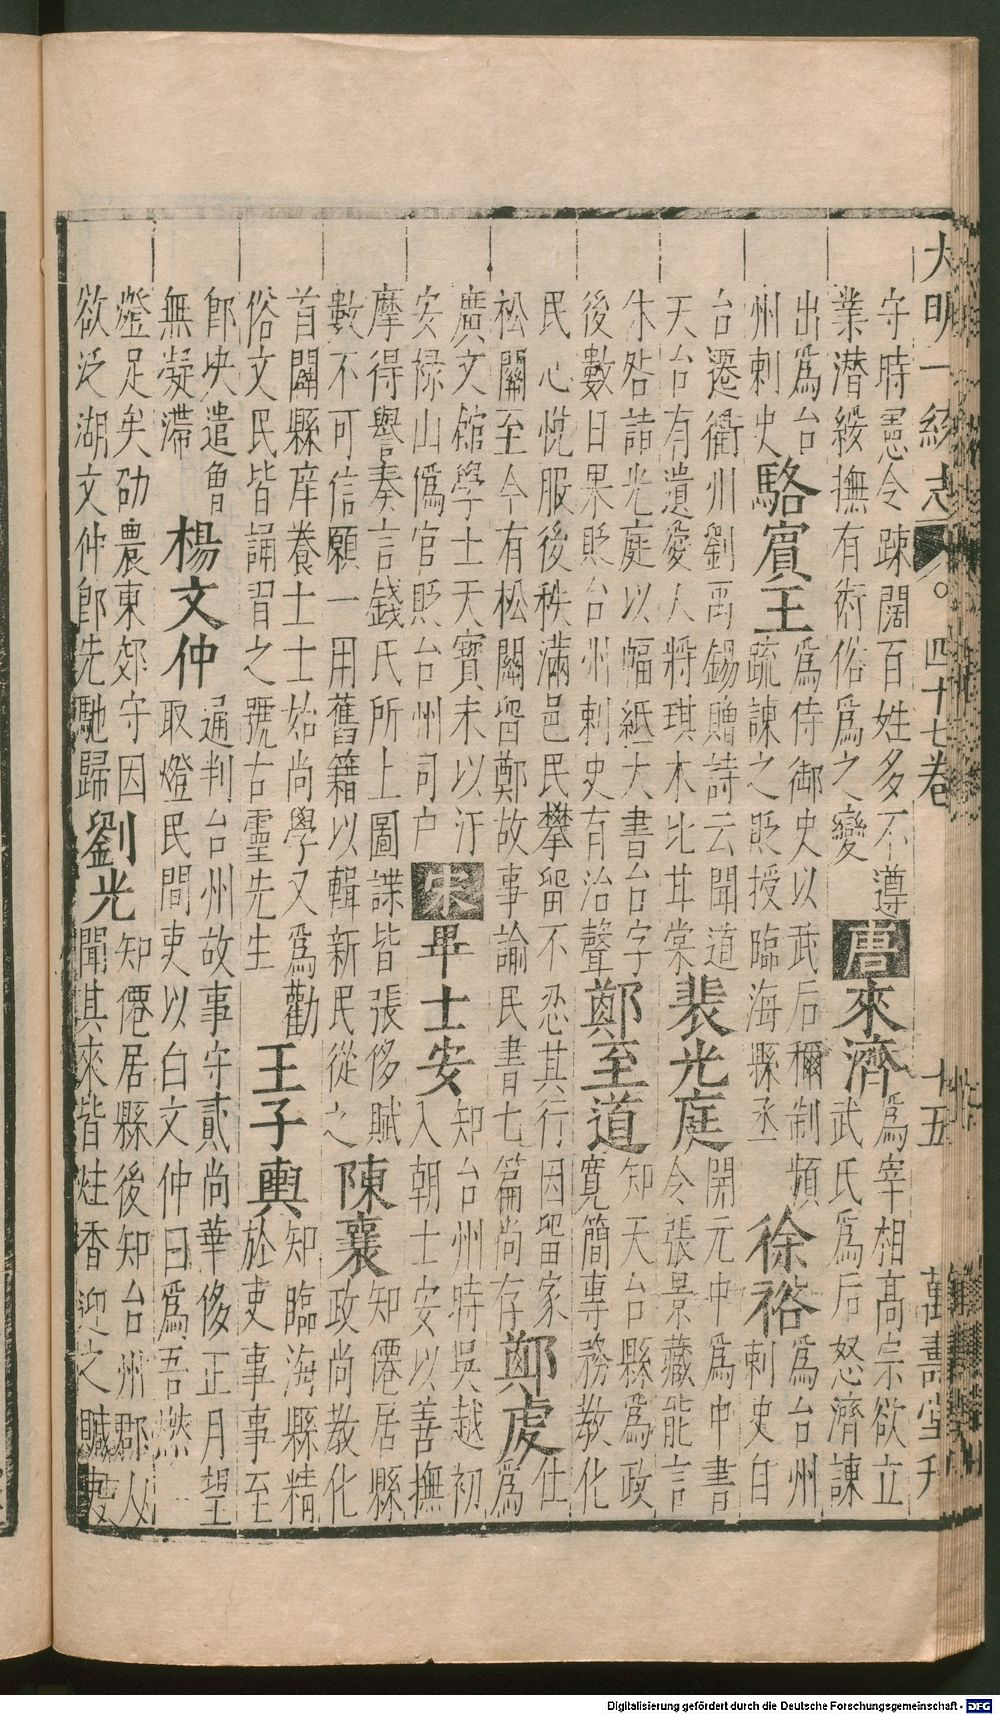 大明一統志 四十七卷 十五 萬壽堂刋
守時憲令踈闊百姓多不遵
業潜綏撫有術俗為之變
唐來濟
為宰相髙宗欲立
武氏為后怒濟諫
出為台
州刺史
駱賓王
為侍御史以武后稱制頻
疏諫之貶授臨海縣丞
徐裕
為台州
刺史自
台遷衢州劉禹錫贈詩云聞道
天台有遺愛人將琪木比甘棠
裴光庭
開元中為中書
令張景藏能言
休咎請光庭以幅紙大書台字
後數日果貶台州刺史有治聲
鄭至道
知天台縣為政
寛簡專務教化
民心悅服後秩滿邑民攀留不忍其行因留家
松關至今有松關留鄭故事諭民書七篇尚存
鄭虔
仕
為
廣文館學士天寶末以汙
安祿山偽官貶台州司户
宋畢士安
知台州時吳越初
入朝士安以善撫
摩得譽奏言錢氏所上圖諜皆張侈賦
數不可信願一用舊籍以輯新民從之
陳襄
知僊居縣
政尚教化
首闢縣庠養士士始尚學又為勸
俗文民皆誦習之號古靈先生
王子輿
知臨海縣精
於吏事事至
即决遣魯
無凝滯
楊文仲
通判台州故事守貳尚華侈正月望
取燈民間吏以白文仲曰為吾燃一
燈足矣劭農東郊守因
欲泛湖文仲即先馳歸
劉光
知僊居縣後知台州郡人
聞其來皆炷香迎之贓吏
Digitalisierung gefördert durch die Deutsche Forschungsgemeinschaft - DFG